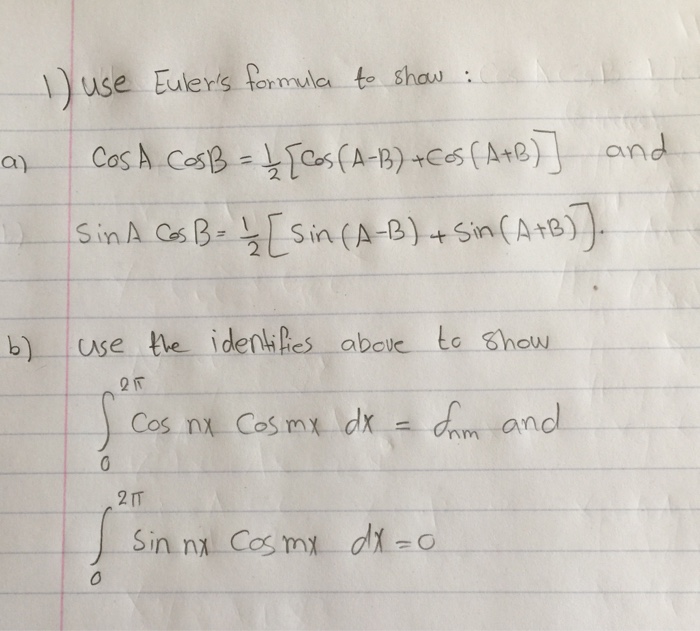 1) use Euler's formula to show :
a) Cos A Cos B = 1/2 [Cos(A-B) + Cos(A+B)] and
Sin A Cos B = 1/2 [Sin(A-B) + Sin(A+B)].
b) use the identifies above to show
∫₀^2π Cos nx Cos mx dx = δnm and
∫₀^2π Sin nx Cos mx dx = 0